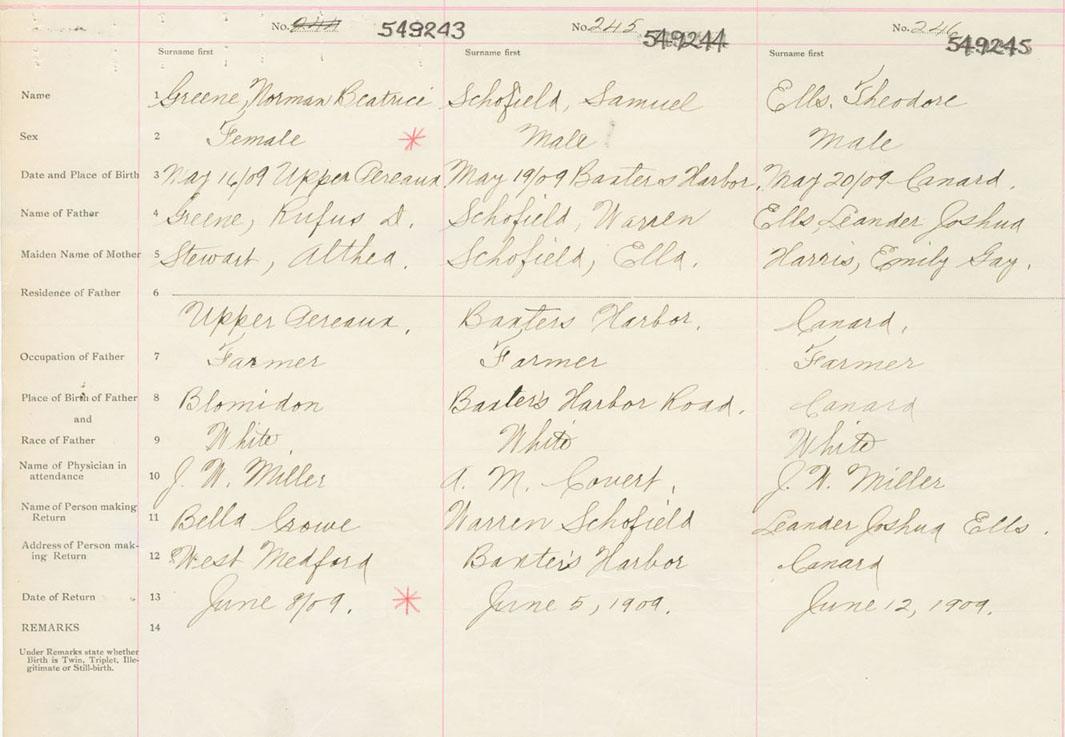 No. 244 549243 No. 245 549244 No. 246 549245
Surname first Surname first Surname first
Name 1 Greene, Norman Beatrice Schofield, Samuel Ells, Theodore
Sex 2 Female * Male Male
Date and Place of Birth 3 May 16/09 Upper Pereaux. May 19/09 Baxters Harbor. May 20/09 Canard.
Name of Father 4 Greene, Rufus D. Schofield, Warren Ells, Leander Joshua
Maiden Name of Mother 5 Stewart, Althea. Schofield, Ella. Harris, Emily Gay.
Residence of Father 6
Upper Pereaux. Baxters Harbor. Canard.
Occupation of Father 7 Farmer Farmer Farmer
Place of Birth of Father 8 Blomidon Baxter's Harbor Road. Canard
and
Race of Father 9 White White White
Name of Physician in
attendance 10 J. W. Miller A. M. Covert. J. W. Miller
Name of Person making
Return 11 Bella Crowe Warren Schofield Leander Joshua Ells.
Address of Person mak-
ing Return 12 West Medford Baxter's Harbor Canard
Date of Return 13 June 8/09. * June 5, 1909. June 12, 1909.
REMARKS 14
Under Remarks state whether
Birth is Twin, Triplet, Ille-
gitimate or Still-birth.